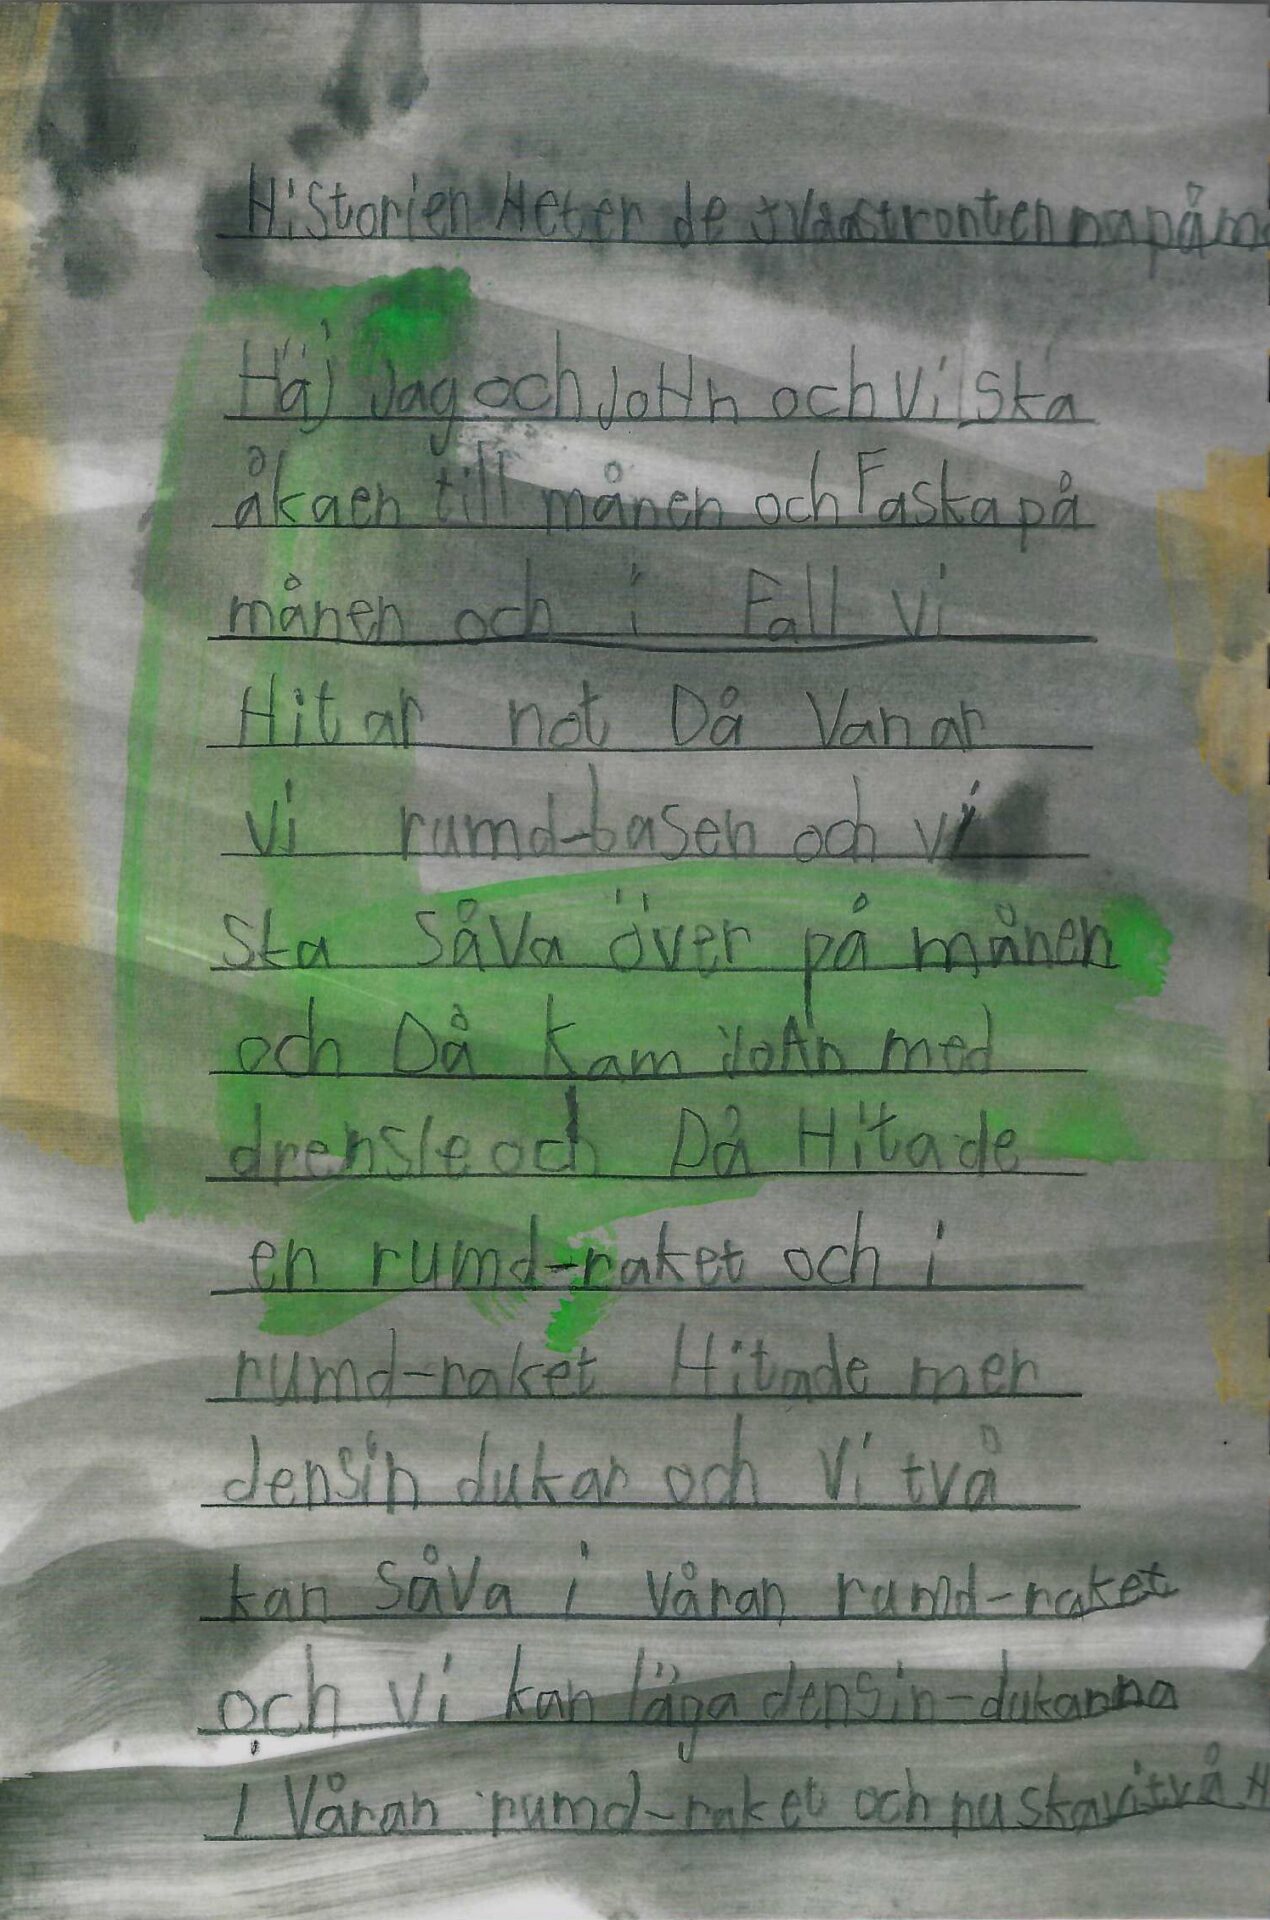 Historien Heter de tvåastrontenna på m
Häj Jag och JoHn och vi ska
åkaen till månen och Faska på
månen och i Fall vi
Hitar not Då Vanar
vi rumd-basen och vi
ska såva över på månen
och Då kam JoHn med
drensle och Då Hitade
en rumd-raket och i
rumd-raket Hitade mer
densin dukar och Vi två
kan såva i våran rumd-raket
och vi kan läga densin-dukarna
i Våran rumd-raket och nu ska vi två H